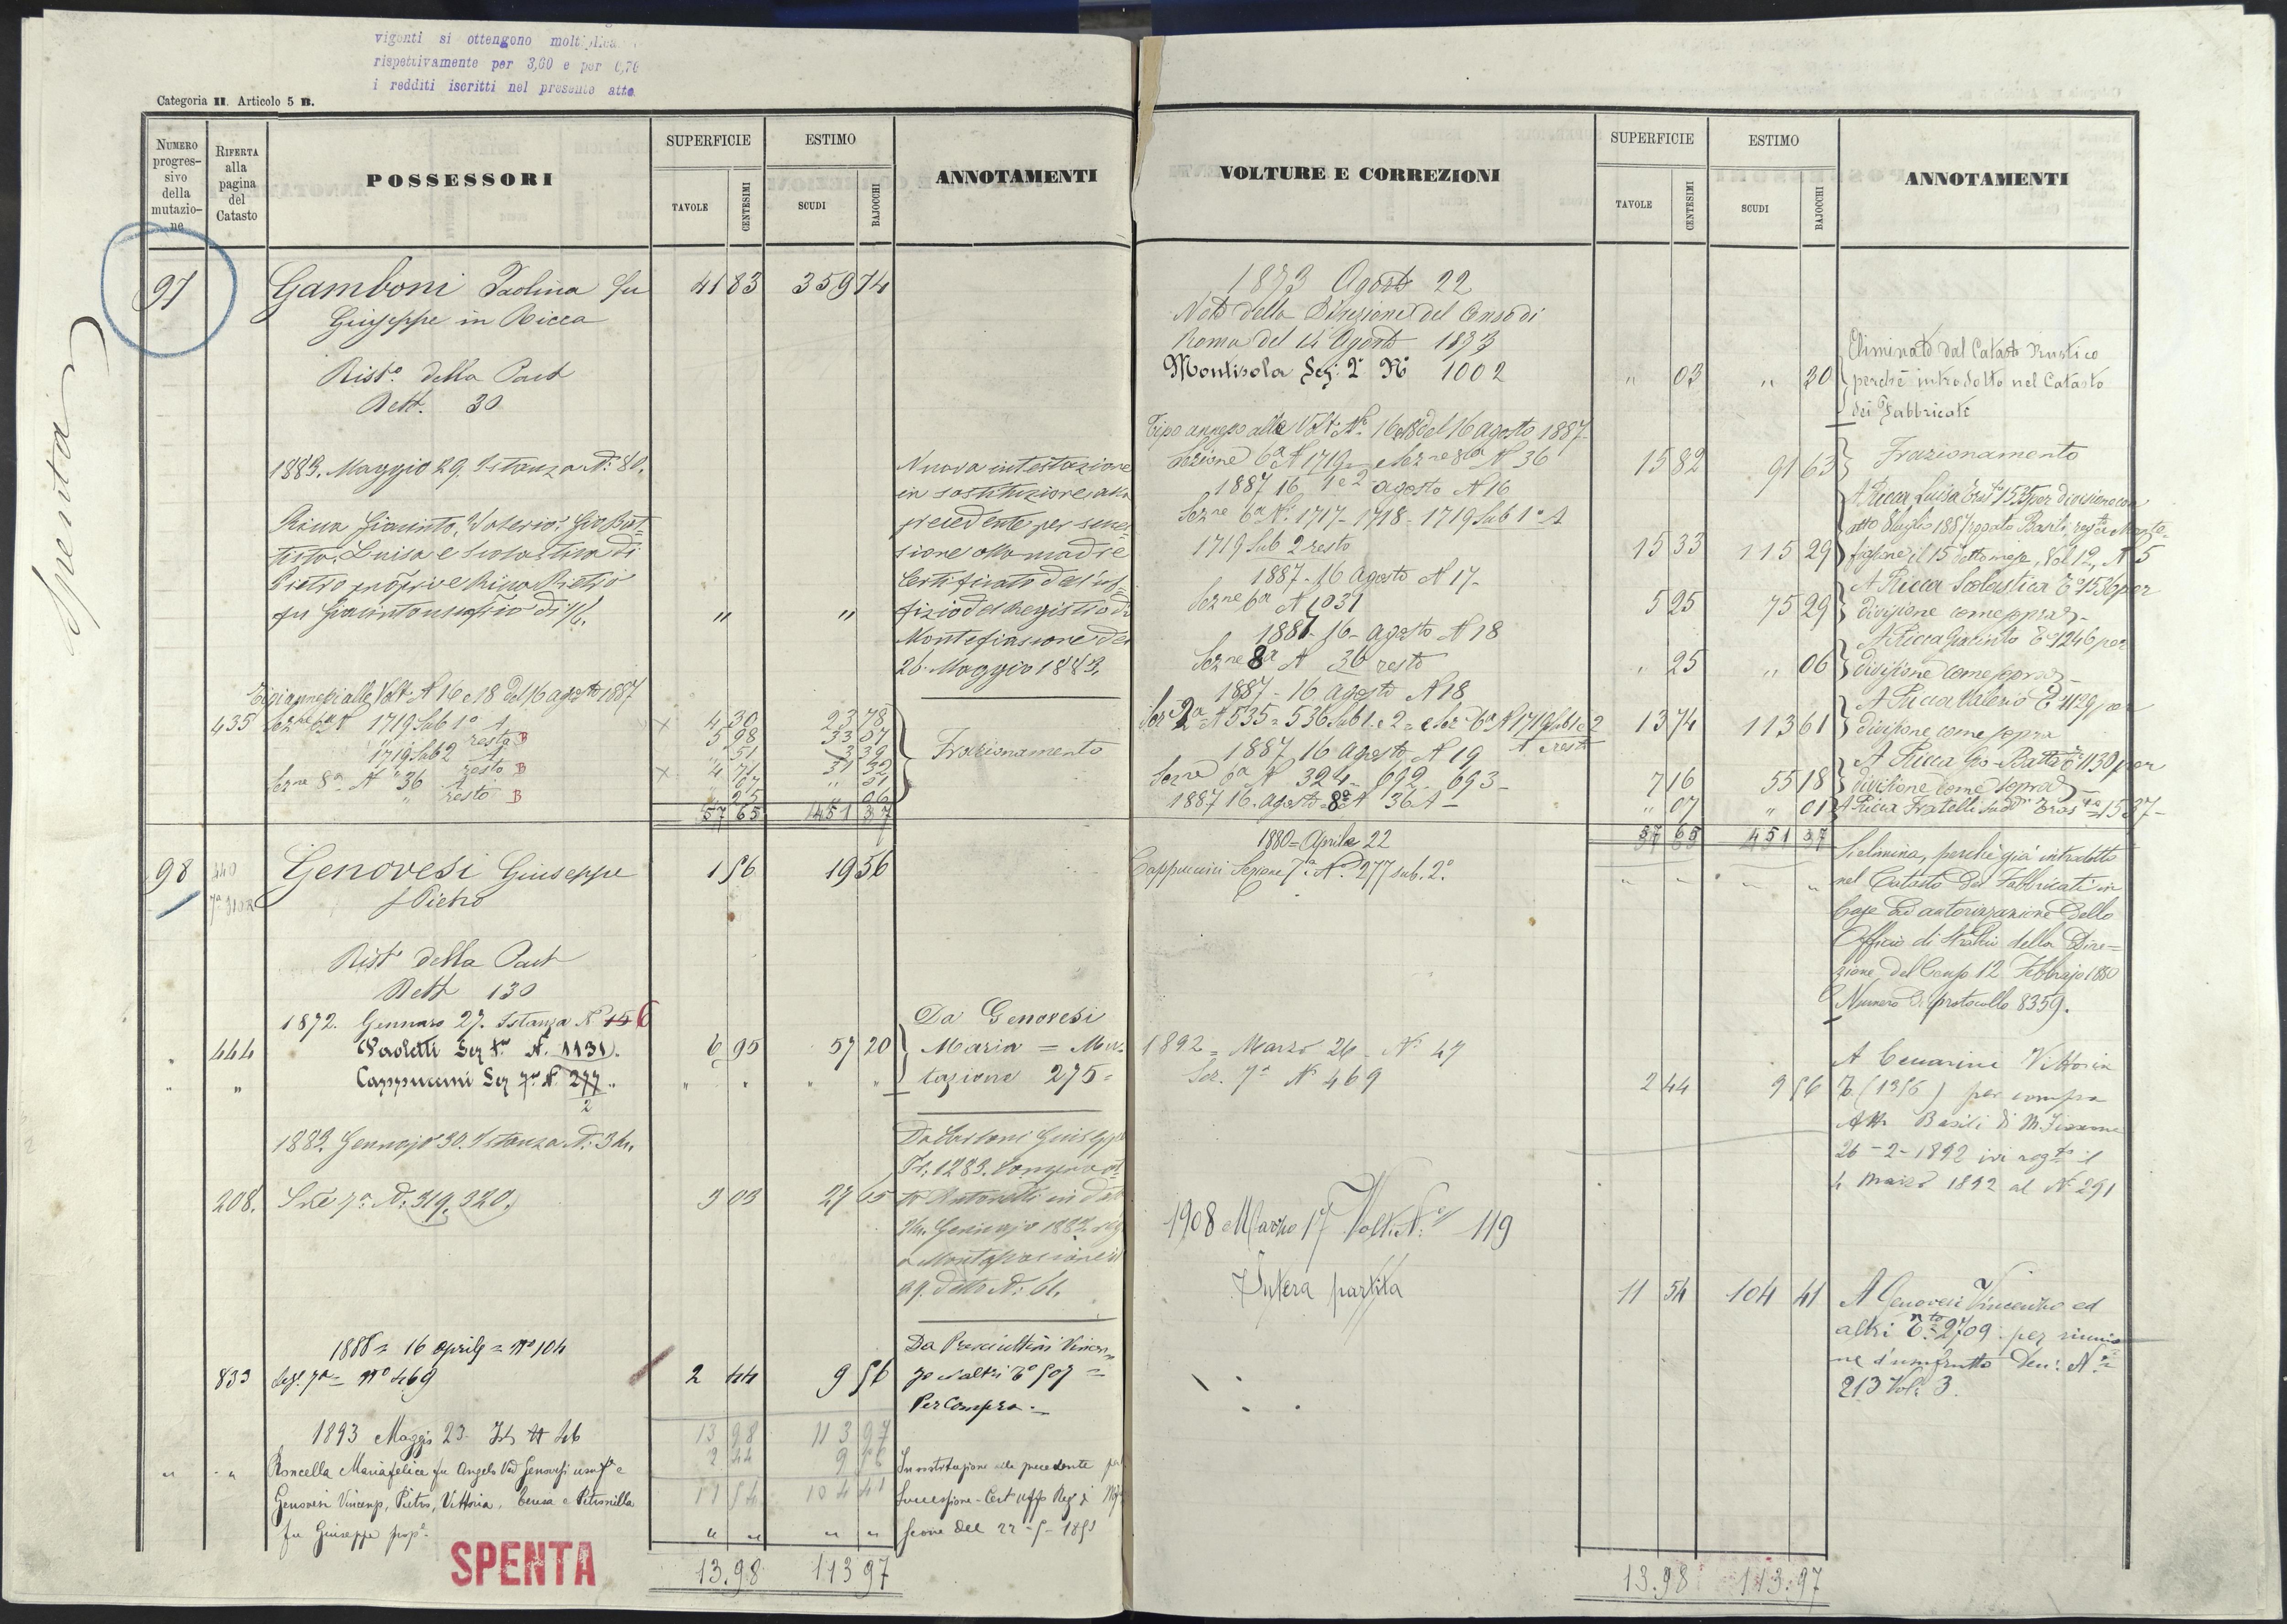 vigenti si ottengono moltiplica
rispettivamente per 3,60 e per 0,76
i redditi iscritti nel presente atto.
Categoria II. Articolo 5 B.
Numero progres-sivo della mutazio-ne
Riferta alla pagina del Catasto
POSSESSORI
SUPERFICIE
TAVOLE
CENTESIMI
ESTIMO
SCUDI
BAJOCCHI
ANNOTAMENTI
spenta
97
Gamboni Paolina fu
41 83
359 74
Giuseppe in Ricca
Rist.o della Part
Rett. 30
1883. Maggio 29. Istanza N. 80.
Ricca Giacinto, Valerio, Gio Bat
tista, Luisa e Scolastica di
Pietro propri e Ricca Pietro
fu Giacinto usufr.io di 1/6.
" "
Nuova intestazione
in sostituzione alla
precedente per succes
sione alla madre
Certificato dell'uf
fizio del Registro di
Montefiascone del
26. Maggio 1883.
Tipi annessi alle Volt. N 16 e 18 del 16 agosto 1887
435 Sez.ne 6a N 1719 Sub 1o A
4 30
23 78
resto B
5 98
33 07
1719 Sub 2 A
" 51
3 39
resto B
4 71
31 32
Sez.ne 8a N 36 A
" 07
" 01
" resto B
" 25
" 06
Frazionamento
57 65
451 37
98
440
Genovesi Giuseppe
1 56
19 56
f Pietro
Rist.o della Part
Rett 130
1872. Gennaro 27. Istanza N 15 6
444
Paoletti Sez 1a N. 1131.
6 95
57 20
" "
Cappuccini Sez 7a N. 277
2
Da Genovesi
Maria = Mu-
tazione 275 =
1883. Gennajo 30. Istanza N. 34.
208. S.ne 7a N. 319. 320.
3 03
27 65
Gennajo 1883
N. 61.
1888 = 16 aprile = No 104
833 Sez. 7a = No 469
2 44
9 56
Per Compra. =
1893 Maggio 23. Ist N 46
Roncella Mariafelice fu Angelo Ved Genovesi usuf.a e
Genovesi Vincenzo, Pietro, Vittoria, Teresa e Petronilla
fu Giuseppe prop.
13 98
113 97
2 44
9 56
11 54
104 41
In sostituzione alla precedente per
Successione - Cert uff Reg di
SPENTA
13.98
113 97
VOLTURE E CORREZIONI
SUPERFICIE
TAVOLE
CENTESIMI
ESTIMO
SCUDI
BAJOCCHI
ANNOTAMENTI
1873 Agosto 22
Nota della Direzione del Censo di
Roma del 14 Agosto 1873
Montisola Sez: 2a No 1002
" 03
" 30
Eliminato dal Catasto Rustico
perchè introdotto nel Catasto
dei Fabbricati
Tipo annesso alle Volt. N. 16 e 18 del 16 agosto 1887
Sezione 6a N 1719 e Sez.ne 8a N 36
1887 16 agosto N 16
15 82
91 63
Frazionamento
Sez.ne 6a N. 1717 - 1718 - 1719 Sub 1o A
1719 Sub 2 resto
15 33
115 29
A Ricca Luisa E. 1535 per divisione con
atto 8 luglio 1887 rogato Basili, reg. a Monte-
fiascone il 15 detto mese, Vol 12, N 5
1887 - 16 Agosto N 17 -
Sez.ne 6a N 1031
5 25
75 29
A Ricca Scolastica E. 1536 per
divisione come sopra -
1887 - 16 - agosto N 18
Sez.ne 8a N 36 resto
" 25
" 06
A Ricca Giacinto E. 1246 per
divisione come sopra -
1887 - 16 agosto N 18
Sez 2a N 535 - 536 Sub 1 e 2 = e Sez 6a N 1719 Sub 1 e 2
A e resto
13 74
113 61
A Ricca Valerio E. 1129 per
divisione come sopra
1887 16 agosto N 19
Sez.ne 6a N 324 - 692 - 693 -
7 16
55 18
A Ricca Gio Batta E. 1130 per
divisione come sopra
1887 16. agosto 8a N 36 A -
" 07
" 01
A Ricca Fratelli 1537 -
57 65
451 37
1880 = Aprile 22
Cappuccini Sezione 7a N. 277 sub. 2o
S'elimina, perchè già introdotto
nel Catasto dei Fabbricati in
base ad autorizzazione dello
Officio di Stralcio della Dire=
zione del Censo 12 Febbrajo 1880
Numero di protocollo 8359.
1892 = Marzo 26 - No 47
Sez. 7a N 469
2 44
9 56
A Cecarini Vittoria
E. (1356) per compra
Atti Basili di M. Fiascone
26 - 2 - 1892 ivi reg.to il
4 marzo 1892 al No 291
1908 Marzo 17 Volt. No 119
Intera partita
11 54
104 41
A Genovesi Vincenzo ed
altri E. 2709 per riunio
ne d'usufrutto Den: No
213 Vol. 3.
13.98
113.97